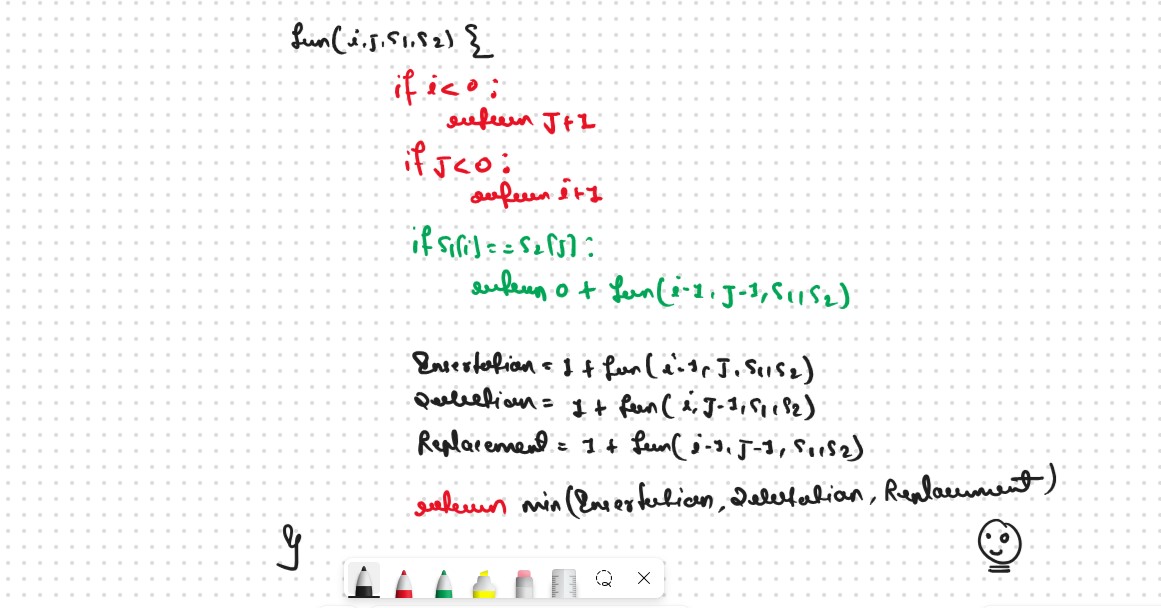 fun(i,J,S1,S2) {
if i<0:
return J+1
if J<0:
return i+1
if S1[i]==S2[J]:
return 0 + fun(i-1, J-1, S1,S2)
Insertation = 1 + fun(i-1, J, S1,S2)
Deletion = 1 + fun(i, J-1, S1,S2)
Replacement = 1 + fun(i-1, J-1, S1,S2)
return min(Insertation, Deletation, Replacement)
}